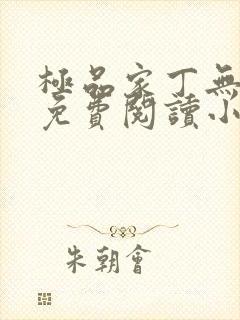 極品家丁無
免費閱讀小
朱朝會